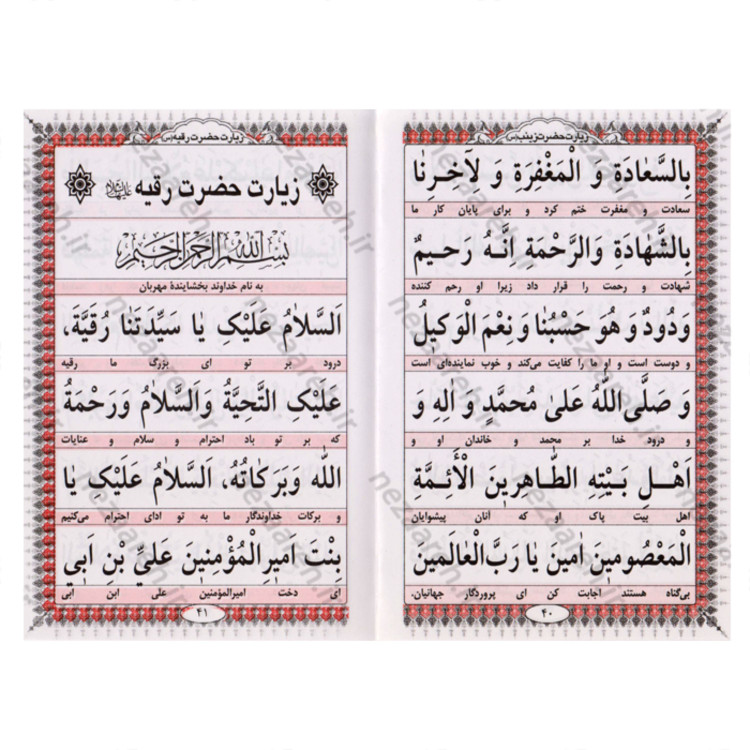 زیارت حضرت زینب (س)
بِالسَّعٰادَةِ وَ الْمَغْفِرَةِ وَ لِاٰخِرِنٰا
سعادت و مغفرت ختم کرد و برای پایان کار ما
بِالشَّهٰادَةِ وَالرَّحْمَةِ اِنَّهُ رَحيمٌ
شهادت و رحمت را قرار داد زیرا او رحم کننده
وَدُودٌ وَ هُوَ حَسْبُنٰا وَ نِعْمَ الْوَكيلُ
و دوست است و او ما را کفایت می‌کند و خوب نماینده‌ای است
وَ صَلَّى اللّٰهُ عَلىٰ مُحَمَّدٍ وَ اٰلِهِ وَ
و درود خدا بر محمد و خاندان او و
اَهْلِ بَيْتِهِ الطّٰاهِرينَ الْأَئِمَّةِ
اهل بیت پاک او که آنان پیشوایان
الْمَعْصُومينَ اٰمينَ يٰا رَبَّ الْعٰالَمينَ
بی‌گناه هستند اجابت کن ای پروردگار جهانیان.
۴۰
زیارت حضرت رقیه (س)
زیارت حضرت رقیه
بِسْمِ اللّٰهِ الرَّحْمٰنِ الرَّحيمِ
به نام خداوند بخشایندهٔ مهربان
اَلسَّلاٰمُ عَلَيْكِ يٰا سَيِّدَتَنٰا رُقَيَّةَ،
درود بر تو ای بزرگ ما رقیه
عَلَيْكِ التَّحِيَّةُ وَالسَّلاٰمُ وَرَحْمَةُ
که بر تو باد احترام و سلام و عنایات
اللّٰهِ وَبَرَكٰاتُهُ، اَلسَّلاٰمُ عَلَيْكِ يٰا
و برکات خداوندگار ما به تو ادای احترام می‌کنیم
بِنْتَ اَميرِ الْمُؤْمِنينَ عَلِيِّ بْنِ اَبي
ای دخت امیرالمؤمنین علی ابن ابی
۴۱
nezzareh.ir